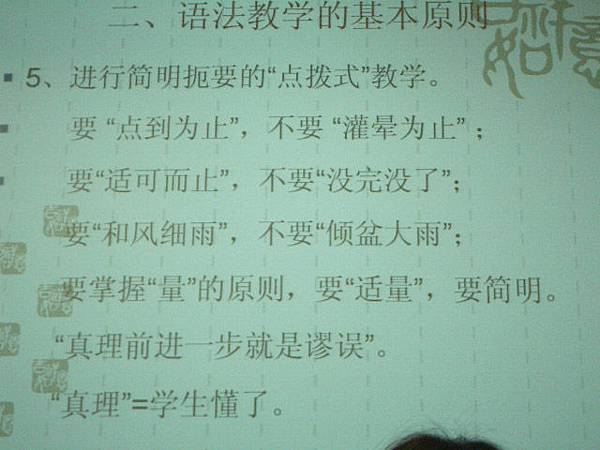 二、语法教学的基本原则
5、进行简明扼要的“点拨式”教学。
要 “点到为止”，不要 “灌晕为止” ；
要“适可而止”，不要“没完没了”；
要“和风细雨”，不要“倾盆大雨”；
要掌握“量”的原则，要“适量”，要简明。
“真理前进一步就是谬误”。
“真理”=学生懂了。